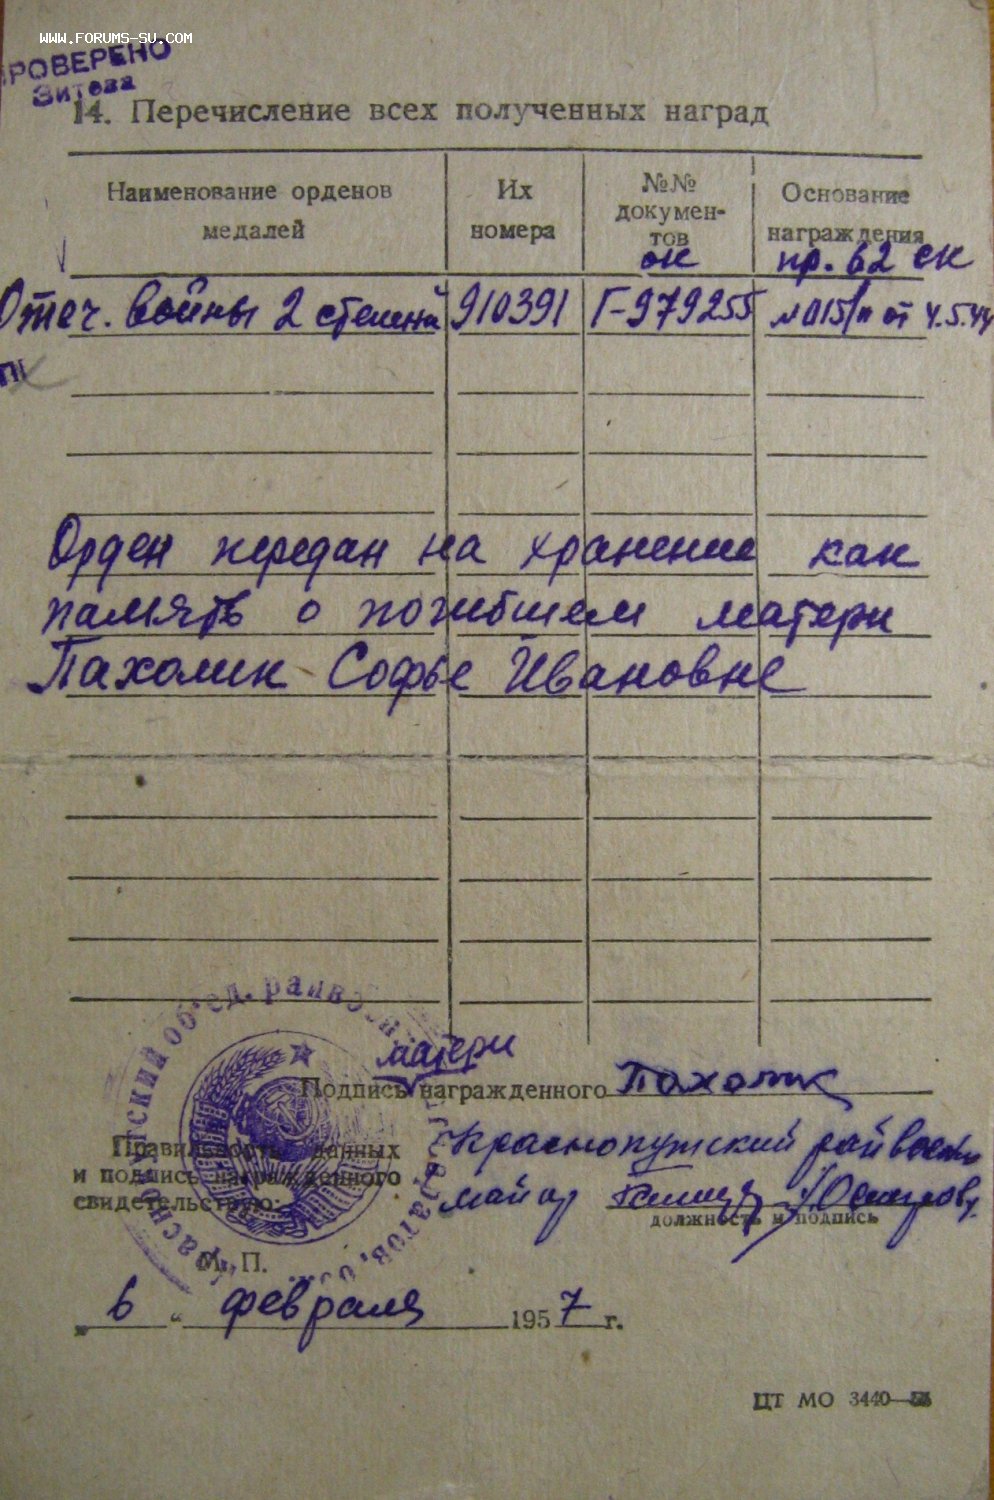 WWW.FORUMS-SU.COM
ПРОВЕРЕНО
14. Перечисление всех полученных наград
Наименование орденов
медалей
Их
номера
№№
докумен-
тов
Основание
награждения
ок
пр. 62 ск
Отеч. войны 2 степени 910391 Г-979255 №015/н от 4.5.44
Орден передан на хранение как
память о погибшем матери
Пахолик Софье Ивановне
матери
Подпись награжденного Пахолик
Правильность данных
и подпись награжденного
свидетельствую:
райвоен
майор
должность и подпись
М. П.
„ 6 “ февраля 1957 г.
ЦТ МО 3440